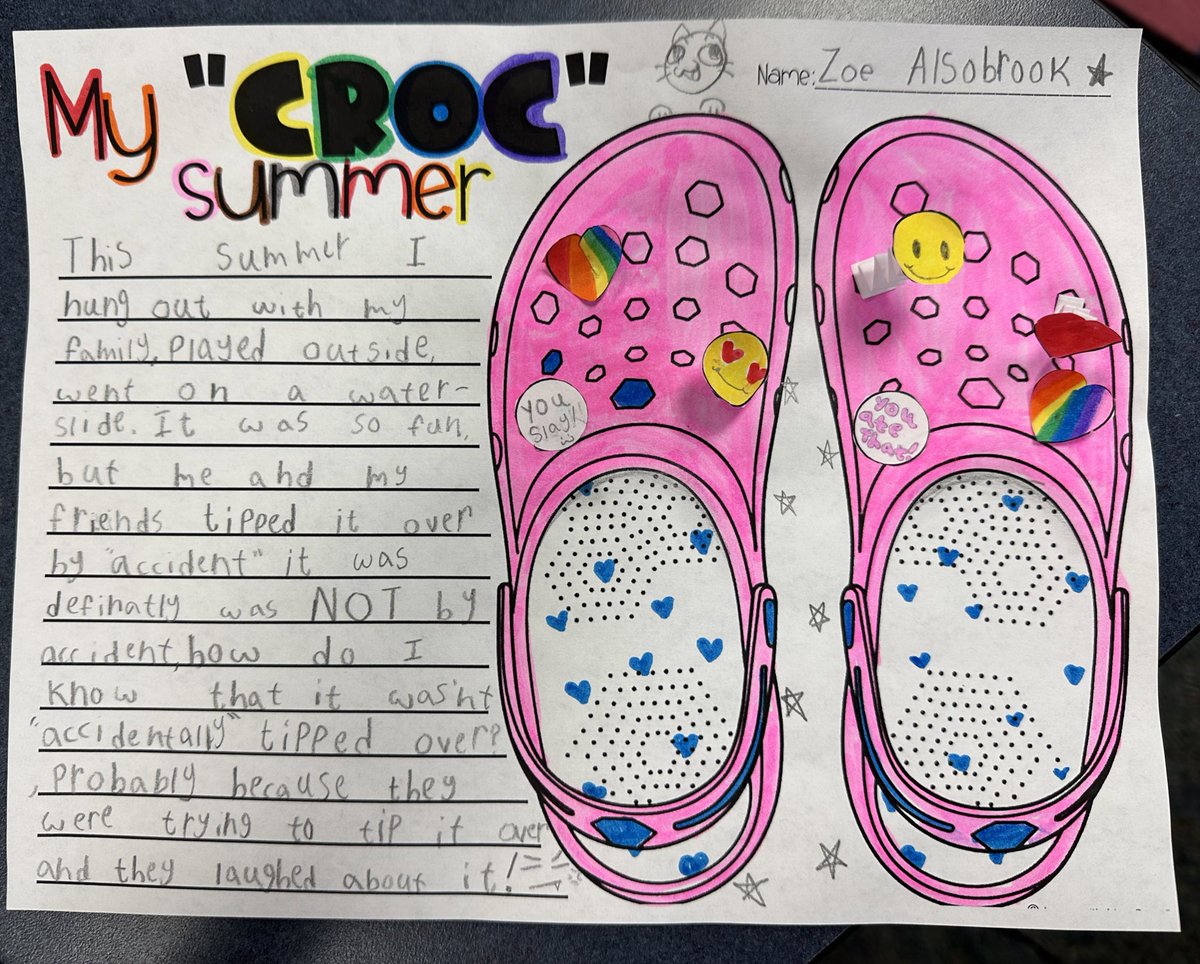 My "CROC"
summer
Name: Zoe Alsobrook
This summer I
hung out with my
family, Played outside,
went on a water-
slide. It was so fun,
but me and my
friends tipped it over
by "accident" it was
definatly was NOT by
accident, how do I
know that it was'nt
"accidentally" tipped over?
, Probably because they
were trying to tip it over
and they laughed about it!
you
slay!
you
ate
that!